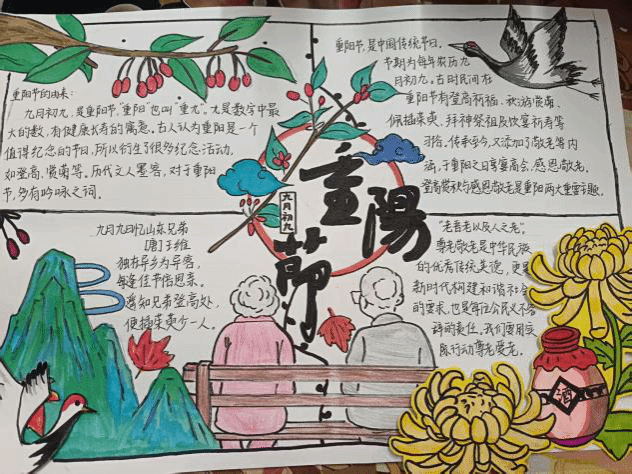 重阳节的由来：
九月初九，是重阳节，"重阳"也叫"重九"。九是数字中最
大的数，有健康长寿的寓意。古人认为重阳是一个
值得纪念的节日，所以衍生了很多纪念活动，
如登高，赏菊等。历代文人墨客，对于重阳
节，多有吟咏之词。
重阳节，是中国传统节日。
节期为每年农历九
月初九。古时民间在
重阳节有登高祈福、秋游赏菊、
佩插茱萸、拜神祭祖及饮宴祈寿等
习俗。传承至今，又添加了敬老等内
涵，于重阳之日享宴高会，感恩敬老。
登高赏秋与感恩敬老是重阳两大重要主题。
重陽
節
九月初九
九月九日忆山东兄弟
[唐]王维
独在异乡为异客，
每逢佳节倍思亲。
遥知兄弟登高处，
遍插茱萸少一人。
"老吾老以及人之老。"
尊老敬老是中华民族
的优秀传统美德，更是
新时代构建和谐社会
的要求，也是每位公民义不容
辞的责任，我们要用实
际行动尊老爱老。
酒